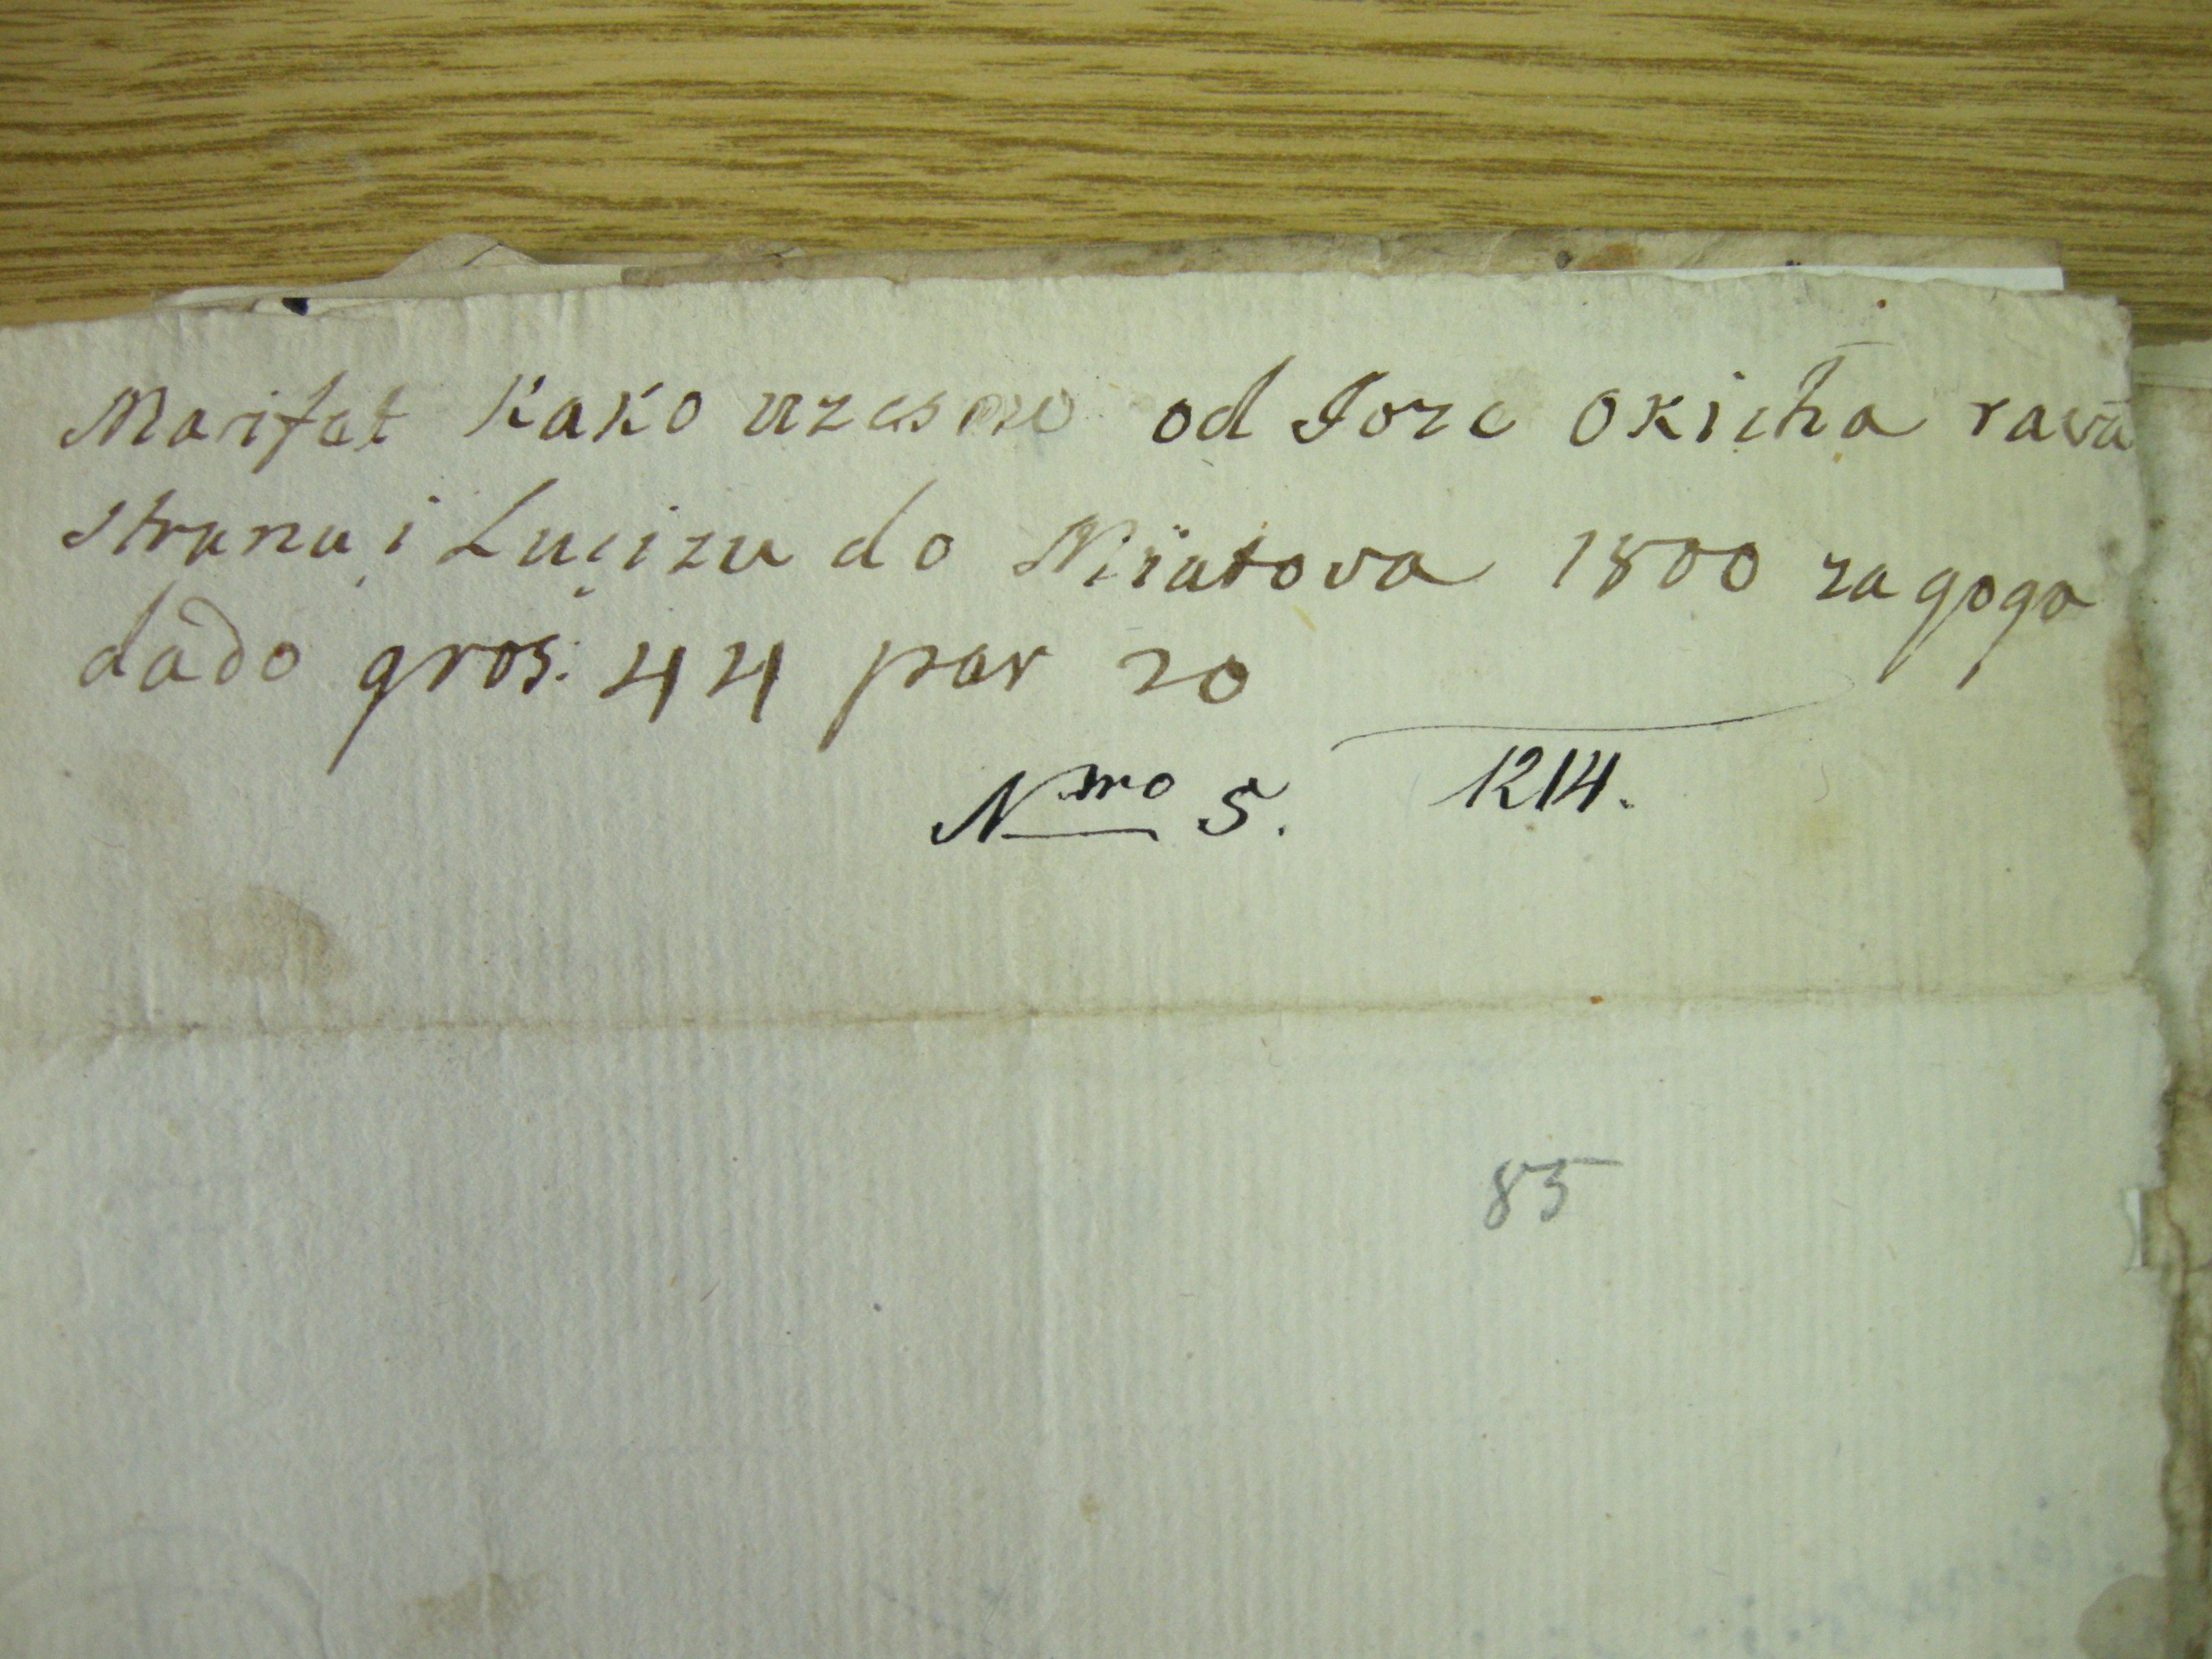 Marifet Kako uzesmo od Joze Okicha rava
stranu i Luçizu do Miratova 1800 za gogo
dado gros: 44 par 20
Nmo 5. 1214.
85